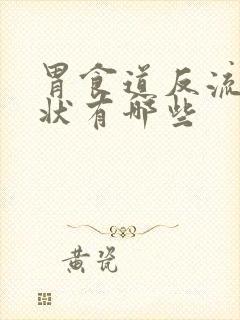 胃食道反流
状有哪些
黄瓷